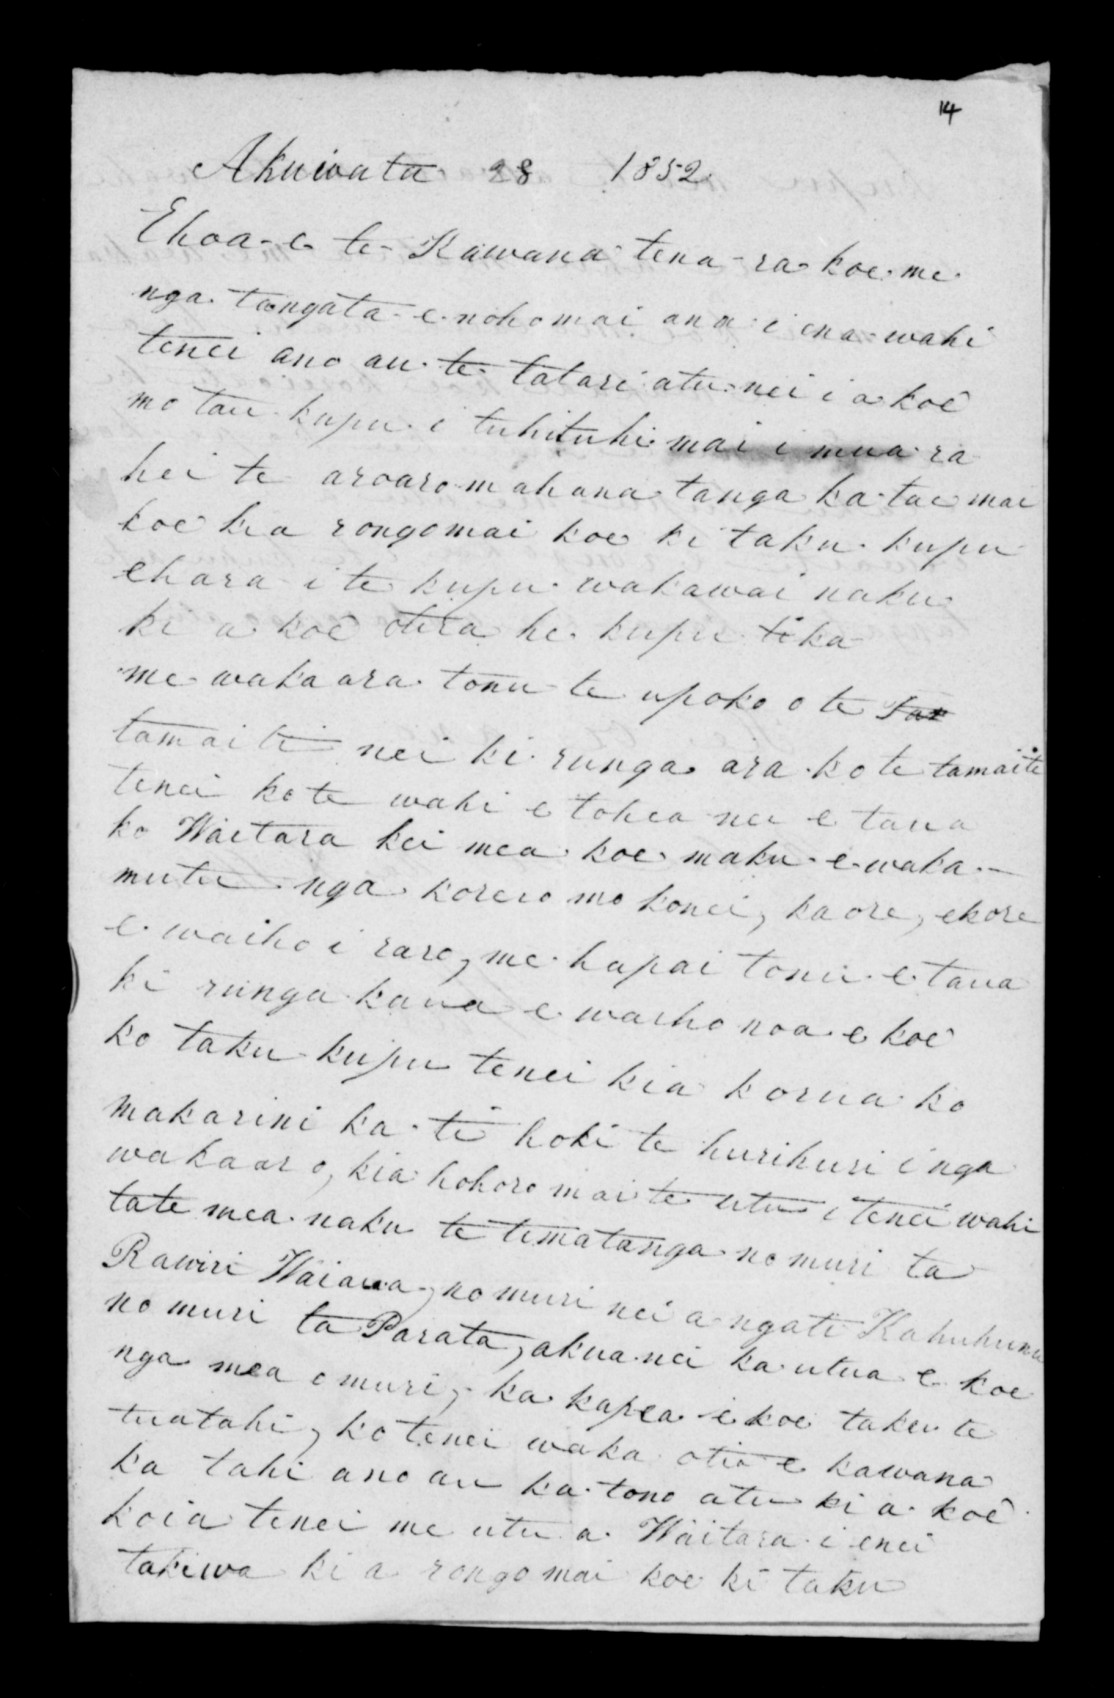 14
Akuwata 28 1852.
Ehoa-e-te-Kawana tena-ra-koe-me-
nga-tangata-e-nohomai ana i ena-wahi
tenei ano au-te-tatari atu-nei i a koe
mo tau-kupu-i tuhituhi mai i mua ra
hei te aroaro mahana tanga ka tae mai
koe kia rongomai koe ki taku-kupu
ehara i te kupu-wakawai naku
ki a koe otira he-kupu tika
me-wakaara-tonu-te upoko o te tar
tamaiti nei ki-runga ara-ko te tamaiti
tenei ko te wahi e tohea nei e taua
ko Waitara kei mea-koe-maku-e-waka-
mutu-nga-korero mo konei, kaore, ekore
e-waiho i raro, me-hapai tonu-e-taua
ki runga kaua e-waiho noa-e-koe
ko taku-kupu tenei kia korua ko
makarini ka-ti hoki te hurihuri i nga
wakaaro, kia hohoro mai te utu i tenei wahi
tate mea-naku te timatanga no muri ta
Rawiri Waiaua, no muri nei a-ngati Kahuhunu
no muri ta Parata, akua nei ka utua e koe
nga mea o muri, ka kapea e koe taku-te
tuatahi, ko tenei waka otio e kawana
ka tahi ano au ka-tono atu ki a-koe
koia tenei me utu a-Waitara-i enei
takiwa ki a rongo mai koe ki taku